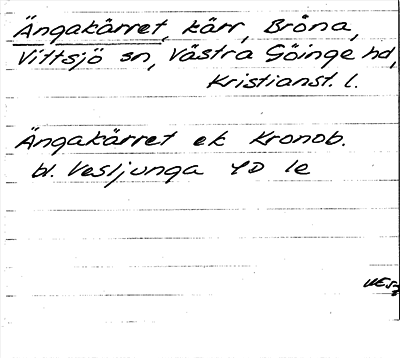 Ängakärret, kärr, Bröna,
Vittsjö sn, Västra Göinge hd,
Kristianst. l.
Ängakärret ek Kronob.
bl. Vesljunga 4D 1e